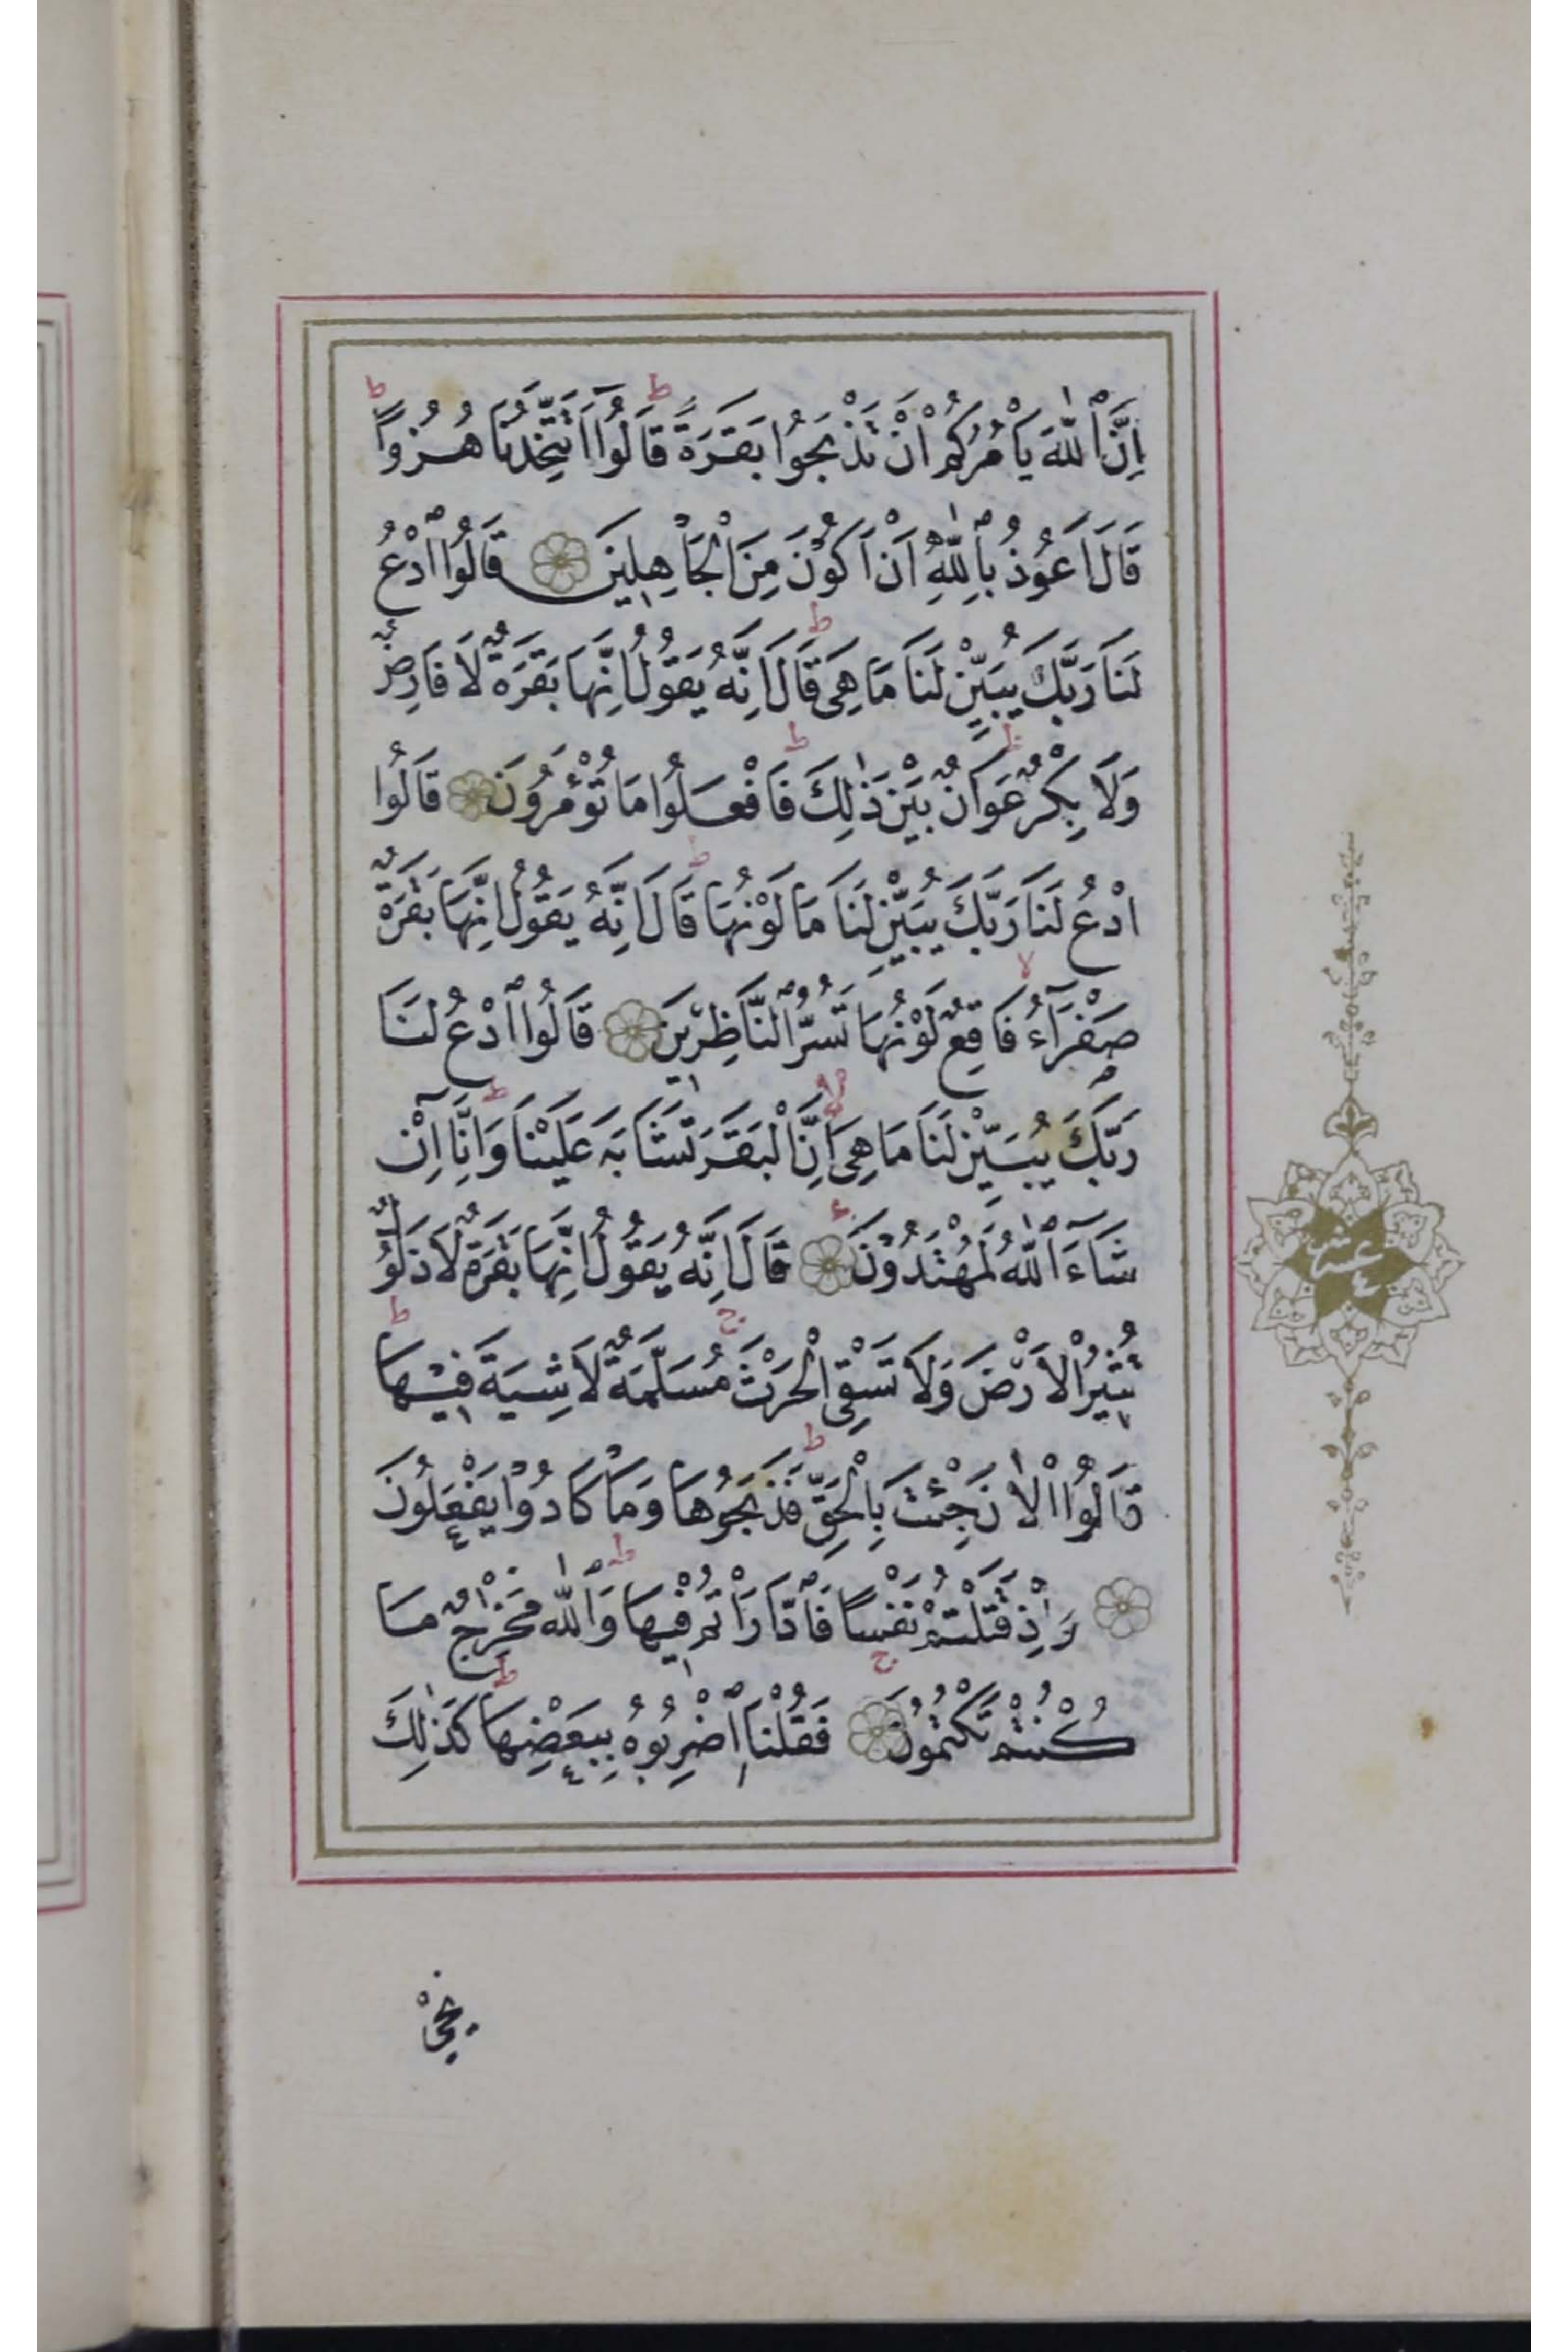 اِنَّ ٱللّٰهَ يَأْمُرُكُمْ اَنْ تَذْبَحُوا بَقَرَةً قَالُوٓا اَتَتَّخِذُنَا هُزُوًا
قَالَ اَعُوذُ بِٱللّٰهِ اَنْ اَكُونَ مِنَ الْجَاهِلِينَ قَالُوا ٱدْعُ
لَنَا رَبَّكَ يُبَيِّنْ لَنَا مَا هِىَ قَالَ اِنَّهُ يَقُولُ اِنَّهَا بَقَرَةٌ لَا فَارِضٌ
وَلَا بِكْرٌ عَوَانٌ بَيْنَ ذٰلِكَ فَافْعَلُوا مَا تُؤْمَرُونَ قَالُوا
ادْعُ لَنَا رَبَّكَ يُبَيِّنْ لَنَا مَا لَوْنُهَا قَالَ اِنَّهُ يَقُولُ اِنَّهَا بَقَرَةٌ
صَفْرَآءُ فَاقِعٌ لَوْنُهَا تَسُرُّ ٱلنَّاظِرِينَ قَالُوا ٱدْعُ لَنَا
رَبَّكَ يُبَيِّنْ لَنَا مَا هِىَ اِنَّ الْبَقَرَ تَشَابَهَ عَلَيْنَا وَاِنَّآ اِنْ
شَآءَ ٱللّٰهُ لَمُهْتَدُونَ قَالَ اِنَّهُ يَقُولُ اِنَّهَا بَقَرَةٌ لَا ذَلُولٌ
تُثِيرُ الْاَرْضَ وَلَا تَسْقِى الْحَرْثَ مُسَلَّمَةٌ لَا شِيَةَ فِيهَا
قَالُوا الْاٰنَ جِئْتَ بِالْحَقِّ فَذَبَحُوهَا وَمَا كَادُوا يَفْعَلُونَ
وَاِذْ قَتَلْتُمْ نَفْسًا فَٱدَّارَأْتُمْ فِيهَا وَٱللّٰهُ مُخْرِجٌ مَا
كُنْتُمْ تَكْتُمُونَ فَقُلْنَا ٱضْرِبُوهُ بِبَعْضِهَا كَذٰلِكَ
عشر
يُحْيِ